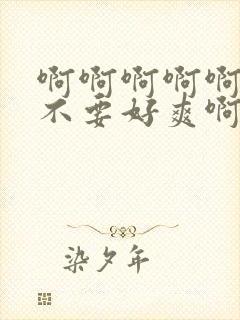 啊啊啊啊啊
不要好爽啊
染夕年